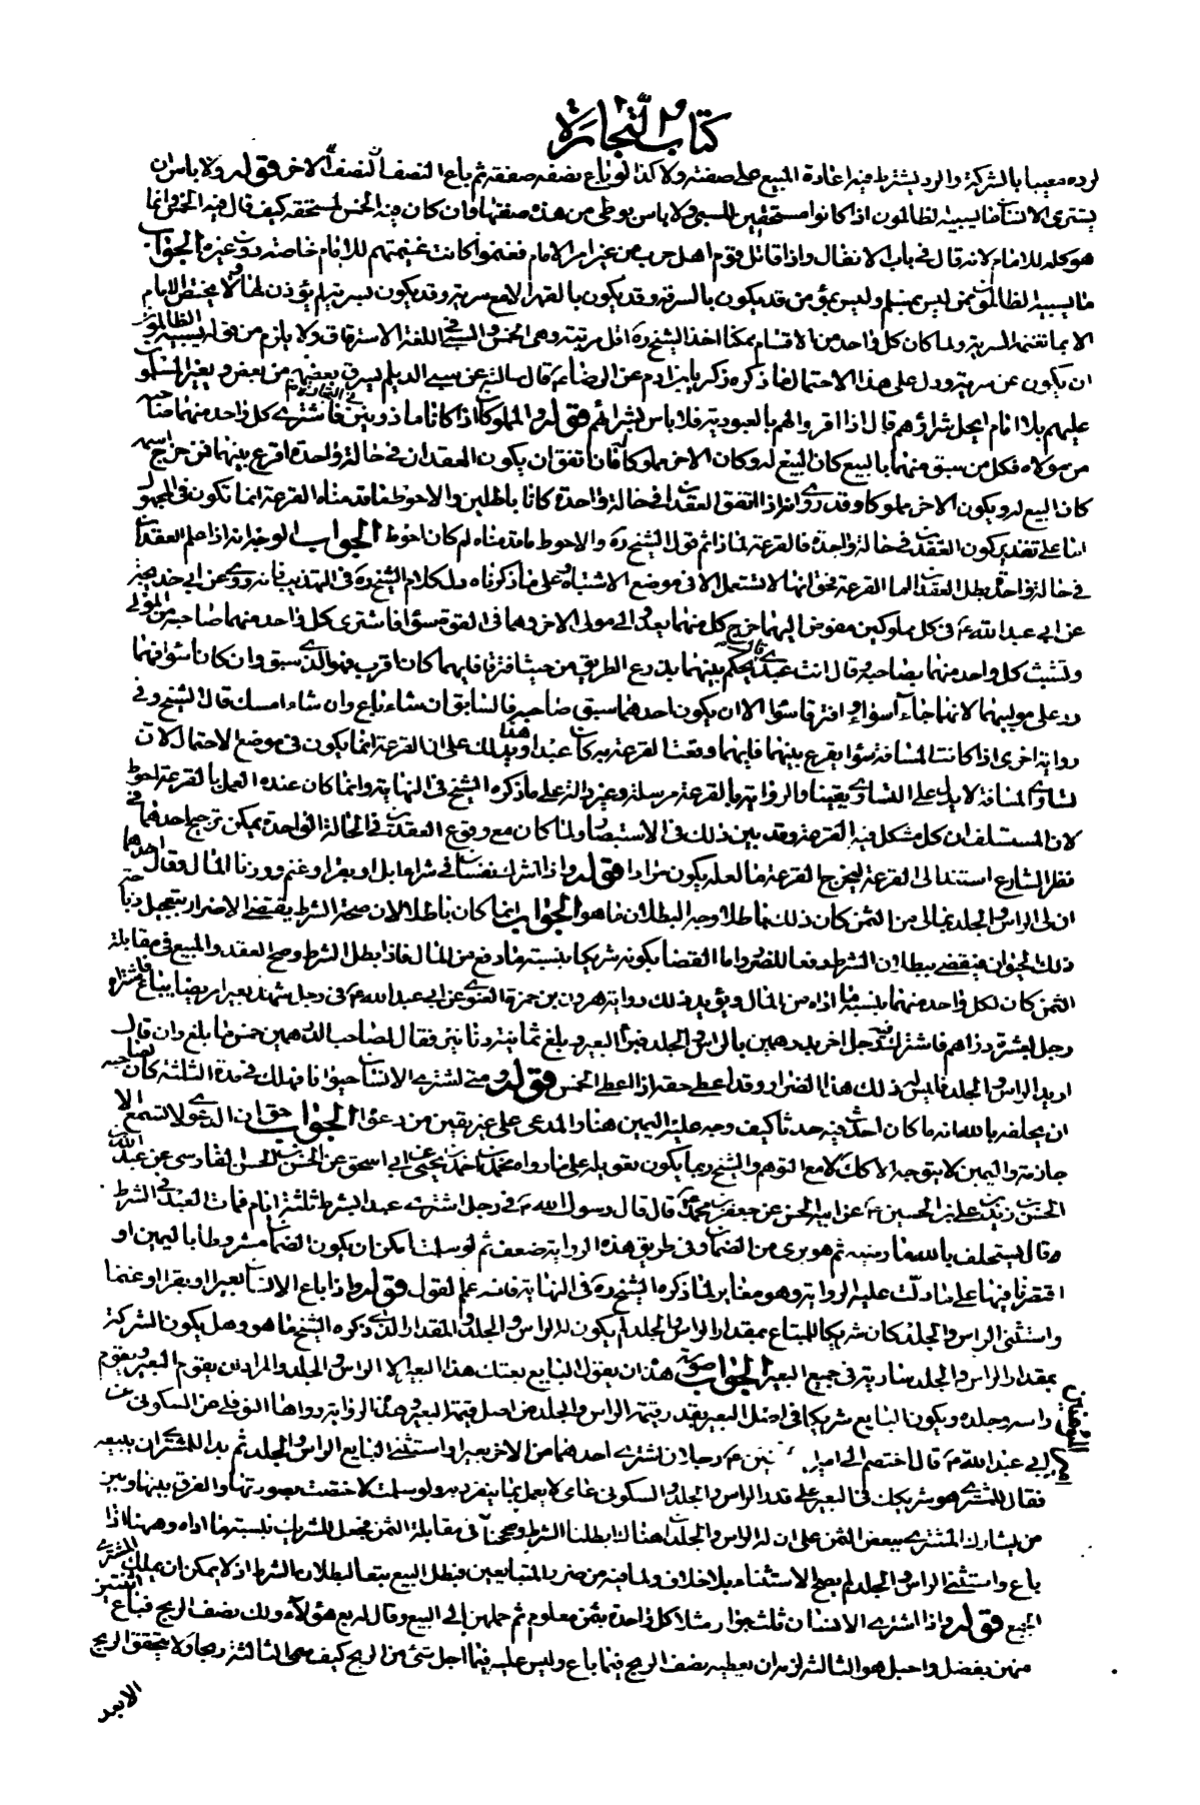 كتاب التجارة
لرده معيبا بالشركة والرد يشترط فيه اعادة المبيع على صفته ولا كذا لو باع نصفه صفقه ثم باع النصف النصف الاخر قوله ولا باس ان
يشترى الانسان ما يسبيه الظالمون اذا كانوا مستحقين للسبى ولا باس بوطى من هذه صفتها وان كان فيه الخمس لمستحقه كيف قال فيه الخمس وانما
هو كله للامام لانه قال فى باب الانفال واذا قاتل قوم اهل حرب من غير امر الامام فغنموا كانت غنيمتهم للامام خاصة دون غيره الجواب
ما يسبيه الظالمون ممن ليس بمسلم وليس بمؤمن قد يكون بالسرقة وقد يكون بالقهر لا مع سرية وقد يكون بسرية لم يؤذن لها ولا يختص الامام
الا بما تغنمه السرية ولما كان كل واحد من الاقسام ممكنا اخذ الشيخ ره اقل مرتبة وهى الخمس والسبى فى اللغة الاسترقاق ولا يلزم من قوله يسبيه الظالمون
ان يكون عن سرية ويدل على هذا الاحتمال ما ذكره زكريا بن ادم عن الرضا ع قال سالته عن سبى الديلم يسرق بعضهم من بعض ويغير المسلمون
عليهم بلا امام ايحل شراؤهم قال اذا اقروا لهم بالعبودية فلا باس بشرائهم قوله والمملوكان اذا كانا ماذونين فى التجارة فاشترى كل واحد منهما صاحبه
من مولاه فكل من سبق منهما بالبيع كان البيع له وكان الاخر مملوكا فان اتفق ان يكون العقدان فى حالة واحدة اقرع بينهما فمن خرج اسمه
كان البيع له ويكون الاخر مملوكا وقد روى انه اذا اتفق العقدان فى حالة واحدة كانا باطلين والاحوط ما قدمناه القرعة انما تكون فى المجهول
اما على تقدير كون العقدين فى حالة واحدة فالقرعة لماذا ثم قول الشيخ ره والاحوط ما قدمناه لم كان احوط الجواب الوجه انه اذا علم العقدان
فى حالة واحدة بطل العقدان اما القرعة فحق انها لا تستعمل الا فى موضع الاشتباه وعلى ما ذكرناه دل كلام الشيخ ره فى التهذيب فانه روى عن ابى خديجة
عن ابى عبد الله ع فى كل مملوكين مفوض اليهما خرج كل منهما يعدو الى مولى الاخر وهما فى القوة سواء فاشترى كل واحد منهما صاحبه من المولى
وتشبث كل واحد منهما بصاحبه وقال انت عبدى قال يحكم بينهما بذرع الطريق من حيث افترقا فايهما كان اقرب فهو الذى سبق وان كانا سواء فهما
رد على مولييهما لانهما جاءا سواء وافترقا سواء الا ان يكون احدهما سبق صاحبه فالسابق ان شاء باع وان شاء امسك قال الشيخ وفى
رواية اخرى اذا كانت المسافة سواء يقرع بينهما فايهما وقعت القرعة به كان عبدا وهذا يدلك على ان القرعة انما يكون فى موضع الاحتمال لان
تساوى المسافة لا يدل على التساوى يقينا والرواية بالقرعة مرسلة وغير دالة على ما ذكره الشيخ فى النهاية وانما كان عنده العمل بالقرعة احوط
لانه استسلف ان كل مشكل فيه القرعة وقد بين ذلك فى الاستبصار ولما كان مع وقوع العقدين فى الحالة الواحدة يمكن ترجيح احدهما فى
نظر الشارع استند الى القرعة ليخرج القرعة ما لعله يكون مرادا قوله واذا اشترك نفسان فى شراء ابل او بقر او غنم ووزنا المال وقال احدهما
ان لى الراس والجلد بمالى من الثمن كان ذلك باطلا وجه البطلان ما هو الجواب انما كان باطلا لان صحة الشرط يقتضى الاضرار بتعجيل ذبح
ذلك الحيوان فيقضى ببطلان الشرط دفعا للضرر واما القضا بكونه شريكا بنسبة ما دفع من المال فاذا بطل الشرط وصح العقد والمبيع فى مقابلة
الثمن كان لكل واحد منهما بنسبة ما اداه من المال ويؤيد ذلك رواية هرون بن حمزة الغنوى عن ابى عبد الله ع فى رجل شهد بعيرا مريضا يباع فاشتراه
رجل بعشرة دراهم فاشترك فيه رجل اخر بدرهمين بالراس والجلد فبرأ البعير وبلغ ثمانية دنانير فقال لصاحب الدرهمين خمس ما بلغ وان قال
اريد الراس والجلد فليس ذلك هذا الضرار وقد اعطى حقه اذا اعطى الخمس قوله ومتى اشترى الانسان حيوانا فهلك فى مدة الثلثة كان لصاحبه
ان يحلفه بالله انه ما كان احدث فيه حدثا كيف وجه عليه اليمين هنا والمدعى على غير يقين من دعواه الجواب حق ان الدعوى لا تسمع الا
جازمة واليمين لا يتوجه الا كذلك لا مع التوهم والشيخ ربما يكون تعويله على ما رواه محمد بن احمد بن يحيى عن ابى اسحق عن الحسن بن ابى الحسن الفارسى عن عبد الله بن
الحسن بن زيد بن على بن الحسين ع عن ابيه الحسن عن جعفر بن محمد ع قال قال رسول الله ص فى رجل اشترى عبدا بشرط ثلثة ايام فمات العبد فى الشرط
قال يستحلف بالله ما رضيه ثم هو برى من الضمان وفى طريق هذه الرواية ضعف ثم لو سلمت امكن ان يكون الضمان مشروطا باليمين او
اقتصرنا فيها على ما دلت عليه الرواية وهو مغاير لما ذكره الشيخ ره فى النهاية فانه عمم القول قوله واذا باع الانسان بعيرا او بقرا او غنما
واستثنى الراس والجلد كان شريكا للمبتاع بمقدار الراس والجلد ايكون له الراس والجلد والمقدار الذى ذكره الشيخ ما هو وهل يكون الشركة
بمقدار الراس والجلد سارية فى جميع البعير الجواب صورة هذه ان يقول البايع بعتك هذا البعير الا الراس والجلد والمراد ان يقوم البعير ويقوم
راسه وجلده ويكون البايع شريكا فى اصل البعير بقدر قيمة الراس والجلد من اصل قيمة البعير وهذه الرواية رواها النوفلى عن السكونى عن
ابى عبد الله ع قال اختصم الى امير المؤمنين ع رجلان اشترى احدهما من الاخر بعيرا واستثنى البايع الراس والجلد ثم بدا للمشترى ان يبيعه
فقال للمشترى هو شريكك فى البعير على قدر الراس والجلد والسكونى عامى لا يعمل بما ينفرد به ولو سلمت لاختصت بصورتها والفرق بينها وبين
من يشارك المشترى ببعض الثمن على ان له الراس والجلد ان هناك ابطلنا الشرط وصححنا فى مقابلة الثمن فجعل للمشترك نسبة ما اداه وههنا اذا
باع واستثنى الراس والجلد لم يصح الاستثناء بلا خلاف ولما فيه من ضرر المتبايعين فبطل البيع تبعا لبطلان الشرط اذ لا يمكن ان يملك المشترى
الجميع قوله واذا اشترى الانسان ثلث جوار مثلا كل واحدة بثمن معلوم ثم حملهن الى البيع وقال له بع هؤلاء ولك نصف الربح فباع اثنتين
منهن بفضل واحبل هو الثالثة لزمه ان يعطيه نصف الربح فيما باع وليس عليه فيما احبل شئ من الربح كيف سمى الثالثة ربحا ولا يتحقق الربح
الا بعد